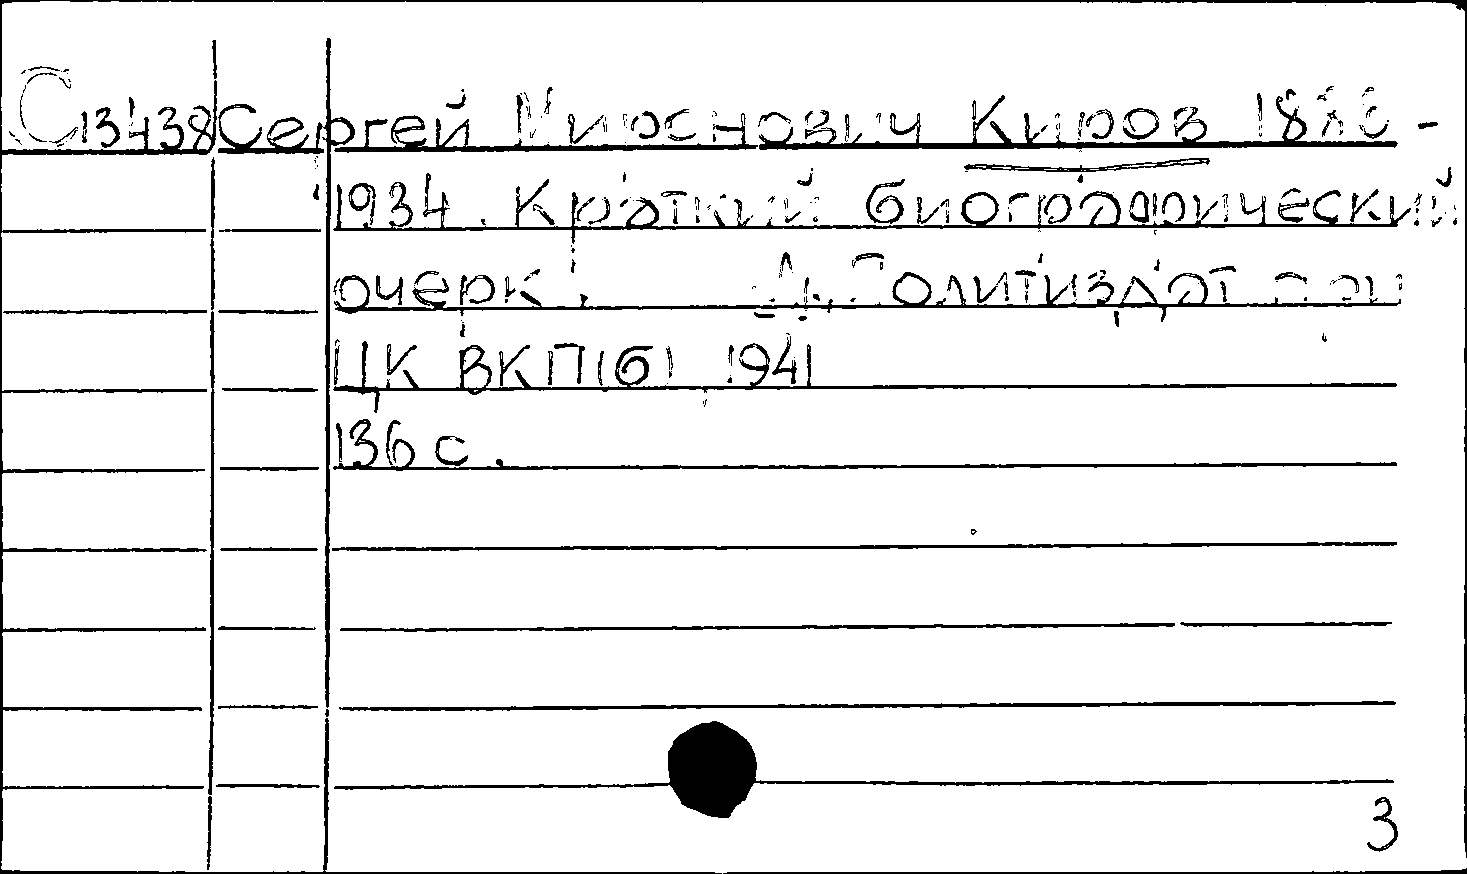 С13438 Сергей Миронович Киров 1886-
1934. Краткий биографический
очерк. Политиздат при
ЦК ВКП(б) 1941
136 с.
3